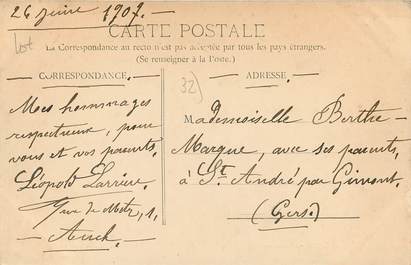 26 Juin 1907.
Lot
CARTE POSTALE
La Correspondance au recto n'est pas acceptée par tous les pays étrangers.
(Se renseigner à la Poste.)
CORRESPONDANCE.
Mes hommages
respectueux, pour
vous et vos parents.
Léopold Larrieu.
rue de Metz, 1.
— Auch. —
ADRESSE.
32)
Mademoiselle Berthe —
Marque, avec ses parents,
à St. André par Gimont.
(Gers.)